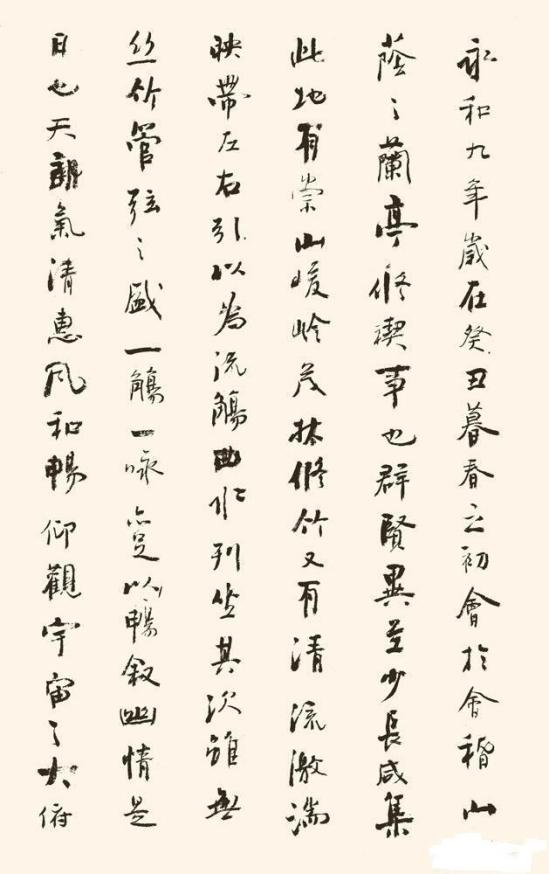 永和九年歲在癸丑暮春之初會於會稽山
蔭之蘭亭修禊事也群賢畢至少長咸集
此地有崇山峻岭茂林修竹又有清流激湍
映帶左右引以為流觴曲水列坐其次雖無
丝竹管弦之盛一觴一咏亦足以暢叙幽情是
日也天朗氣清惠風和暢仰觀宇宙之大俯